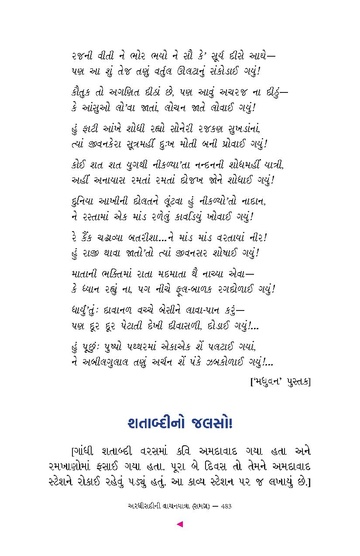 રજની વીતી ને ભોર ભયો ને સૌ કે' સૂર્ય દીસે આયે—
પણ આ શું તેજ તણું વર્તુલ ઊલટાનું સંકોડાઈ ગયું!
કૌતુક તો અગણિત દીઠાં છે, પણ આવું અચરજ ના દીઠું—
કે આંસુઓ લો'વા જાતાં, લોચન જાતે લોવાઈ ગયું!
હું ફાટી આંખે શોધી રહ્યો સોનેરી રજકણ સુખડાંનાં,
ત્યાં જીવનકેરા સૂત્રમહીં દુઃખ મોતી બની પ્રોવાઈ ગયું!
કોઈ શત શત યુગથી નીકળ્યા'તા નન્દનની શોધમહીં યાત્રી,
અહીં અનાયાસ રમતાં રમતાં દોજખ જોને શોધાઈ ગયું!
દુનિયા આખીની દોલતને લૂંટવા હું નીકળ્યો'તો નાદાન,
ને રસ્તામાં એક માંડ રળેલું કાવડિયું ખોવાઈ ગયું!
રે કૈંક ચઢાવ્યા બતરીશા...ને માંડ માંડ વરતાયાં નીર!
હું રાજી થાવા જાતો'તો ત્યાં જીવનસર શોષાઈ ગયું!
માતાની ભક્તિમાં રાતા મદમાતા થૈ નાચ્યા એવા—
કે ધ્યાન રહ્યું ના, પગ નીચે ફૂલ-બાળક રગદોળાઈ ગયું!
ધાર્યું'તુંઃ દાવાનળ વચ્ચે બેસીને લાવા-પાન કરું—
પણ દૂર દૂર પેટાતી દેખી દીવાસળી, દોડાઈ ગયું!...
હું પૂછુંઃ પુષ્પો પથ્થરમાં એકાએક શેં પલટાઈ ગયાં,
ને અબીલગુલાલ તણું અર્ચન શેં પંકે ઝબકોળાઈ ગયું!...
['મધુવન' પુસ્તક]
શતાબ્દીનો જલસો!
[ગાંધી શતાબ્દી વરસમાં કવિ અમદાવાદ ગયા હતા અને
રમખાણોમાં ફસાઈ ગયા હતા. પૂરા બે દિવસ તો તેમને અમદાવાદ
સ્ટેશને રોકાઈ રહેવું પડ્યું હતું. આ કાવ્ય સ્ટેશન પર જ લખાયું છે.]
અરધી સદીની વાચનયાત્રા (સમગ્ર) — 483